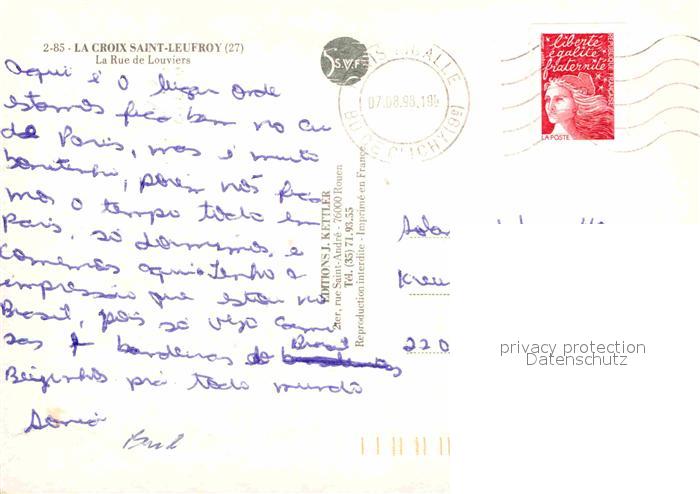 2-85 - LA CROIX SAINT-LEUFROY (27)
La Rue de Louviers
Aqui é o lugar onde
estamos fica bem no cu
de Paris, mas é muito
bonitinho, porém nós fica
mos o tempo todo em
Paris, só dormimos e
comemos aqui. Tenho a
impressão que estou no
Brasil, pois só vejo cami
sas e bandeiras do Brasil
Beijinhos prá todo mundo
Sonia
S.V.F
07.08.98.19
BD DE CLICHY (09)
liberté
égalité
fraternité
RÉPUBLIQUE FRANÇAISE
LA POSTE
EDITIONS J. KETTLER
2ter, rue Saint-André - 76000 Rouen
Tél. (35) 71.93.55
Reproduction interdite - Imprimé en France
220
privacy protection
Datenschutz